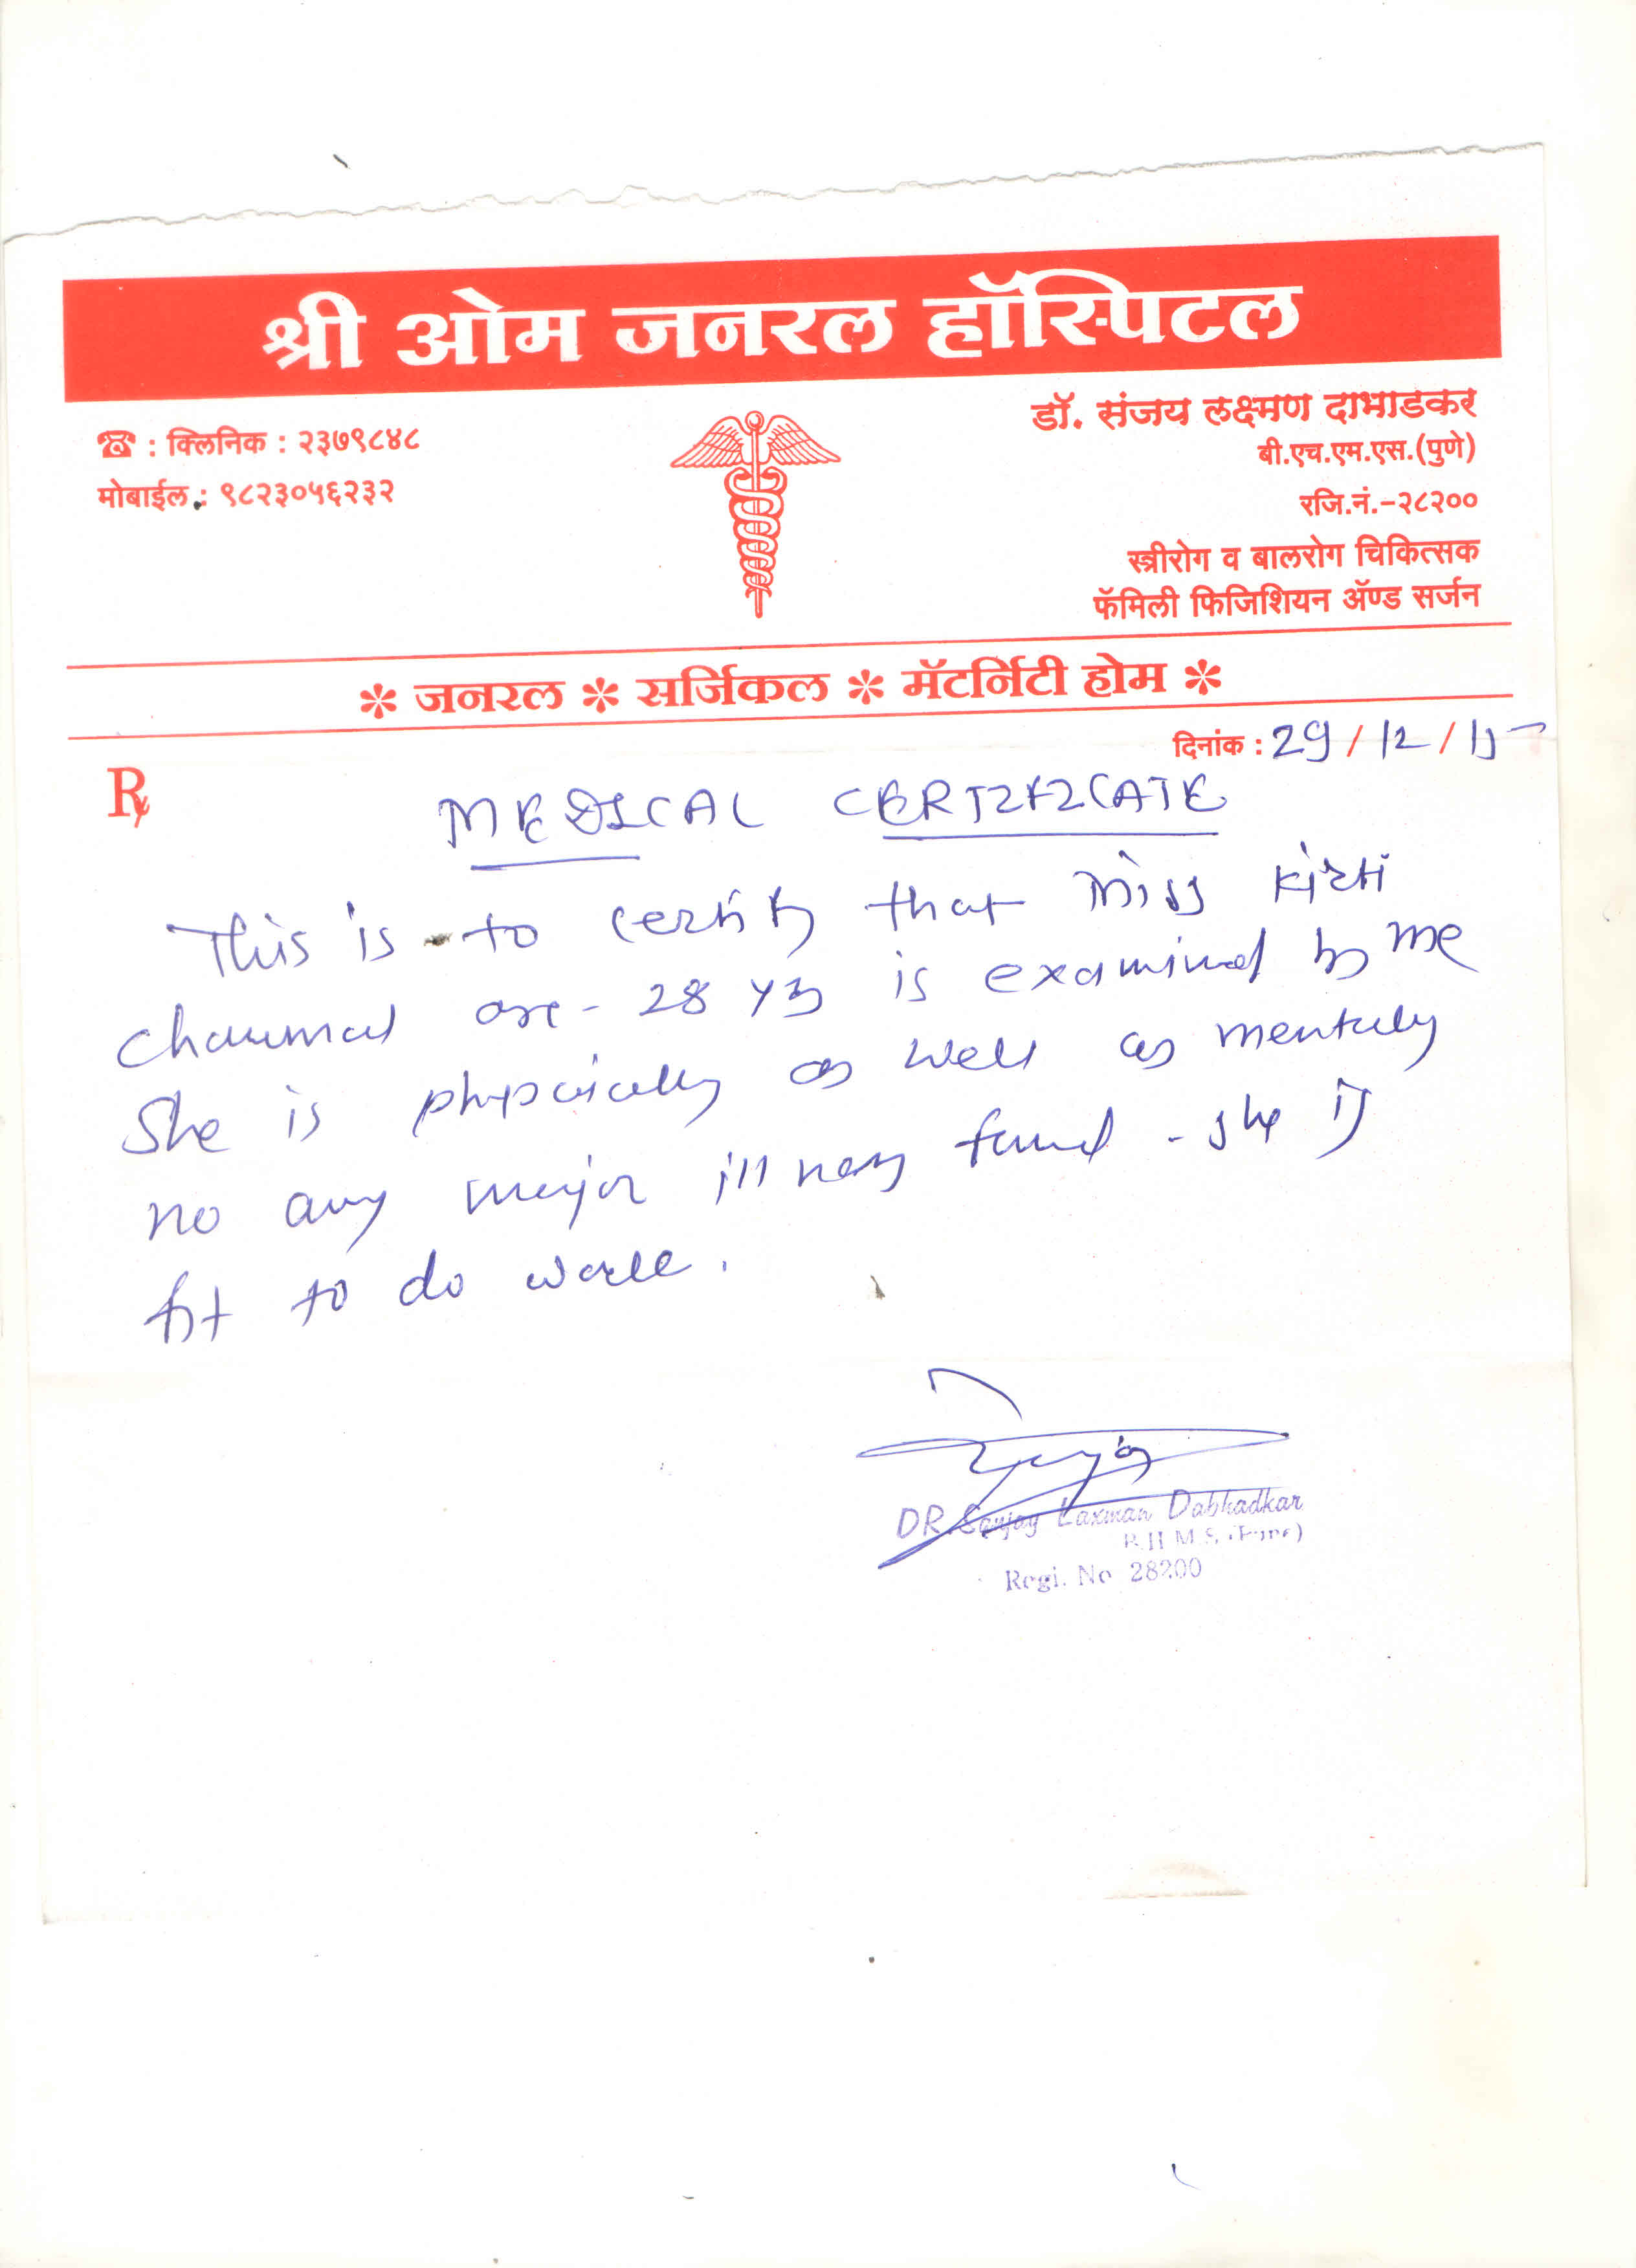 श्री ओम जनरल हॉस्पिटल
☎ : क्लिनिक : २३७९८४८
मोबाईल : ९८२३०५६२३२
डॉ. संजय लक्ष्मण दाभाडकर
बी.एच.एम.एस.(पुणे)
रजि.नं.-२८२००
स्त्रीरोग व बालरोग चिकित्सक
फॅमिली फिजिशियन ॲण्ड सर्जन
* जनरल * सर्जिकल * मॅटर्निटी होम *
दिनांक : 29/12/15
Rx
MEDICAL CERTIFICATE
This is to certify that Miss Kirti
is examined by me
28 yrs
She is physically as well as mentally
no any major illness found - she is
fit to do work.
DR. Sanjay Laxman Dabhadkar
B.H.M.S. (Pune)
Regi. No 28200